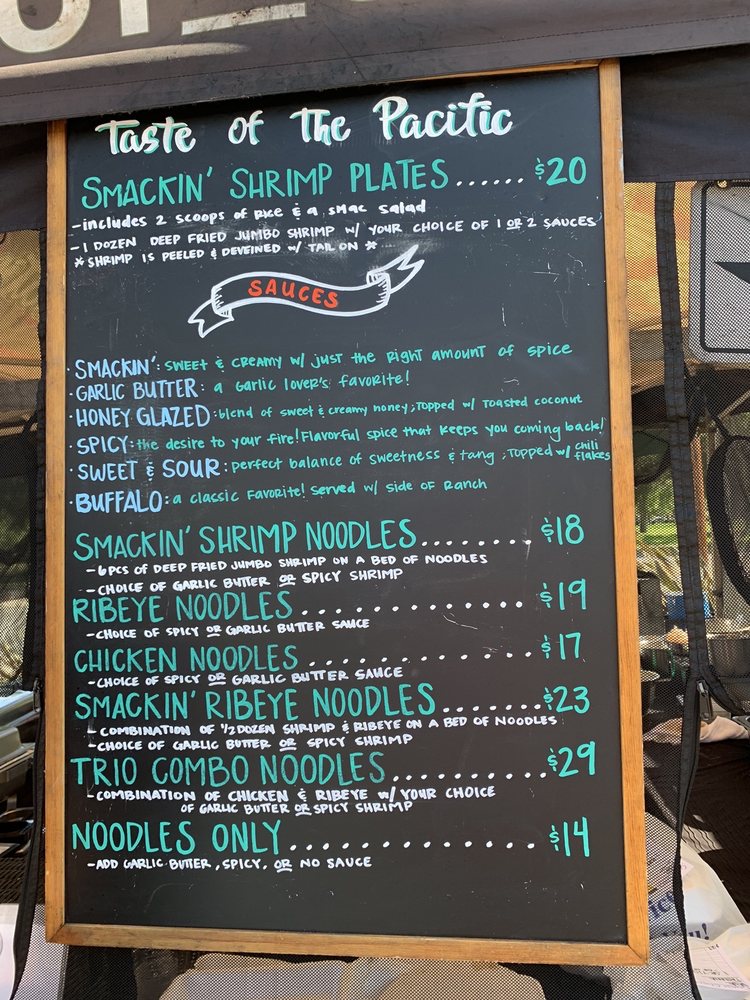 Taste of The Pacific
SMACKIN' SHRIMP PLATES ...... $20
-includes 2 scoops of rice & a smac salad
-1 DOZEN DEEP FRIED JUMBO SHRIMP w/ YOUR CHOICE OF 1 OR 2 SAUCES
* SHRIMP IS PEELED & DEVEINED w/ TAIL ON *
SAUCES
· SMACKIN': SWEET & CREAMY w/ just the right amount of spice
· GARLIC BUTTER: a Garlic lover's favorite!
· HONEY GLAZED: blend of sweet & creamy honey; Topped w/ Toasted coconut
· SPICY: the desire to your fire! Flavorful spice that keeps you coming back!
· SWEET & SOUR: perfect balance of sweetness & tang ; Topped w/ chili flakes
· BUFFALO: a classic Favorite! Served w/ side of Ranch
SMACKIN' SHRIMP NOODLES ........ $18
- 6 PCS OF DEEP FRIED JUMBO SHRIMP ON A BED OF NOODLES
- CHOICE OF GARLIC BUTTER OR SPICY SHRIMP
RIBEYE NOODLES ............. $19
- CHOICE OF SPICY OR GARLIC BUTTER SAUCE
CHICKEN NOODLES ............. $17
- CHOICE OF SPICY OR GARLIC BUTTER SAUCE
SMACKIN' RIBEYE NOODLES ....... $23
- COMBINATION OF 1/2 DOZEN SHRIMP & RIBEYE ON A BED OF NOODLES
- CHOICE OF GARLIC BUTTER OR SPICY SHRIMP
TRIO COMBO NOODLES .......... $29
- COMBINATION OF CHICKEN & RIBEYE w/ YOUR CHOICE
OF GARLIC BUTTER OR SPICY SHRIMP
NOODLES ONLY .............. $14
- ADD GARLIC BUTTER, SPICY, OR NO SAUCE